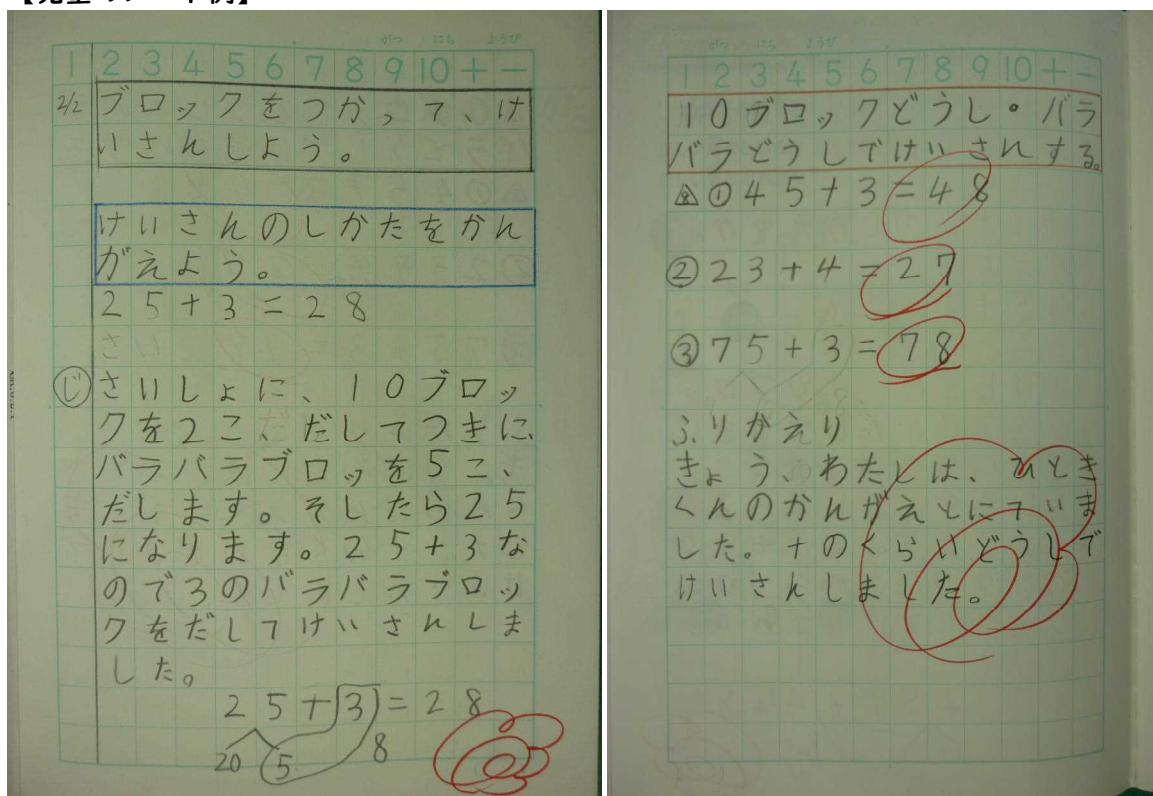 がつ にち ようび
1 2 3 4 5 6 7 8 9 10 + −
2/2 ブロックをつかって、け
いさんしよう。
けいさんのしかたをかん
がえよう。
25+3=28
じ さいしょに、10ブロッ
クを2こ、だしてつきに、
バラバラブロッを5こ、
だします。そしたら25
になります。25+3な
ので3のバラバラブロッ
クをだしてけいさんしま
した。
25+3=28
20 5 8
がつ にち ようび
1 2 3 4 5 6 7 8 9 10 + −
10ブロックどうし・バラ
バラどうしでけいさんする。
①45+3=48
②23+4=27
③75+3=78
ふりかえり
きょう、わたしは、ひとき
くんのかんがえとにていま
した。十のくらいどうしで
けいさんしました。